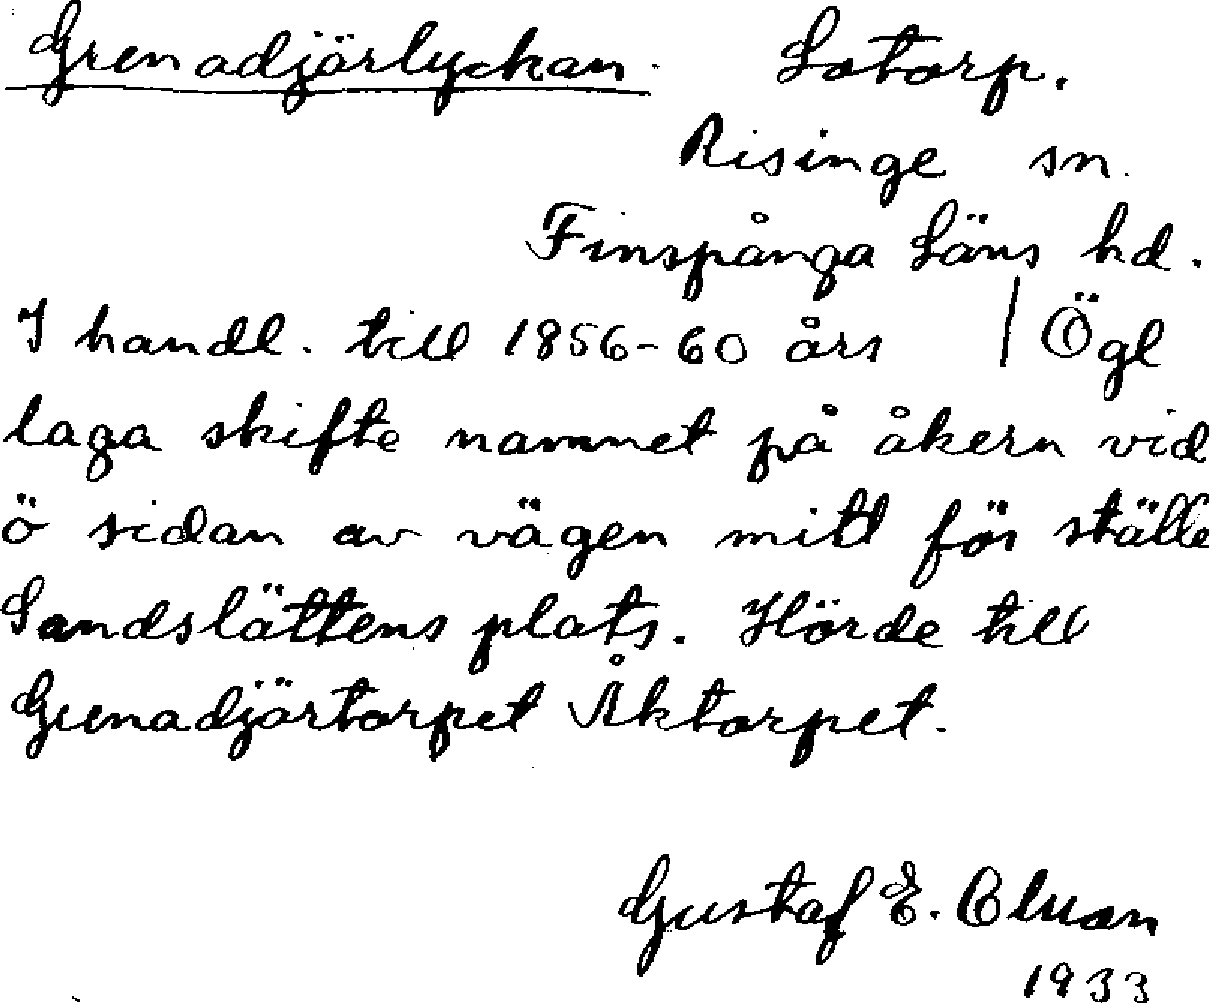 Grenadjärlyckan. Lotorp.
Risinge sn.
Finspånga Läns hd.
I handl. till 1856-60 års | Ögl
laga skifte namnet på åkern vid
ö sidan av vägen mitt för ställe
Sandslättens plats. Hörde till
Grenadjärtorpet Åktorpet.
Gustaf E.
1933